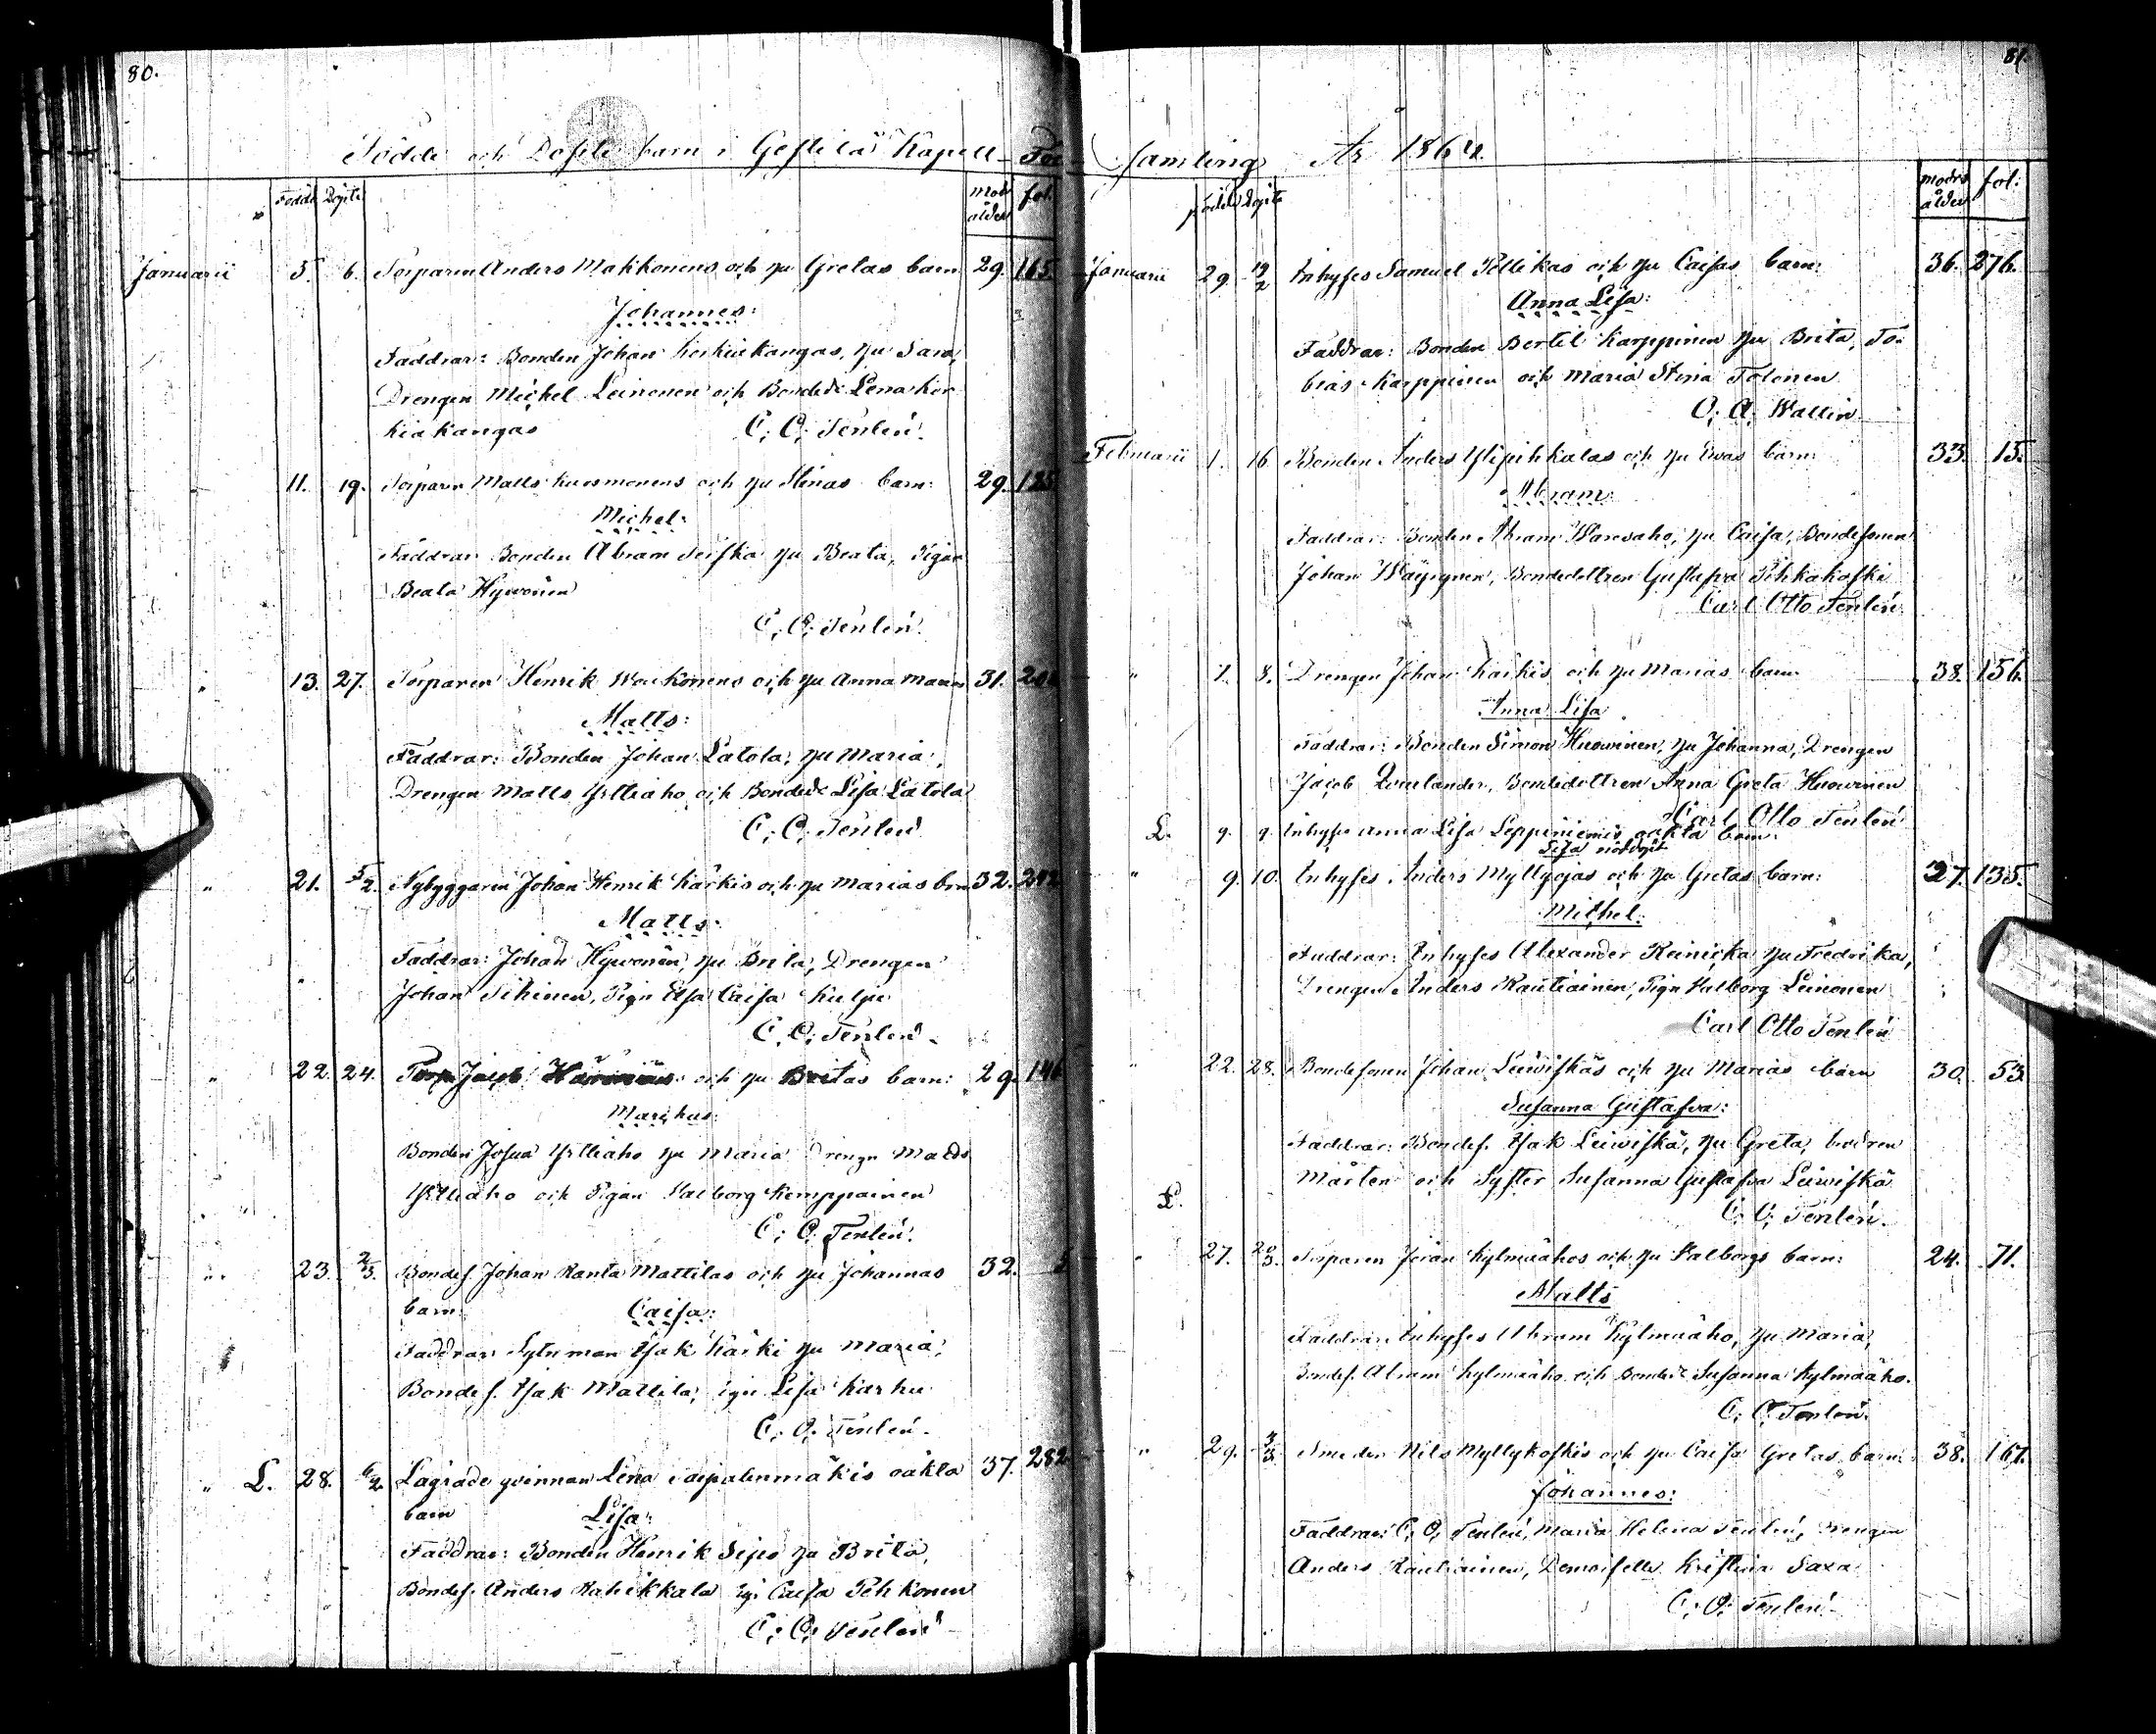 80.
Födde och Döpte barn i Gestilä Kapell-För
Födde Döpte
mod: ålder fol.
Januarii 5. 6. Torparen Anders Makkonens och hu Gretas barn 29. 165.
Johannes:
Faddrar: Bonden Johan Korkiakangas, hu Sara,
Drengen Michel Leinonen och Bonded: Lena Kor
kiakangas C: O: Tenlén.
11. 19. Torparen Matts Kuosmonens och hu Stinas barn: 29.
Michel:
Faddrar: Bonden Abram hu Beata, Pigan
Beata Hyvönen
C: O: Tenlén.
" 13. 27. Torparen Henrik och hu Anna 31.
Matts:
Faddrar: Bonden Johan Latola, hu Maria,
Drengen Matts Yrttiaho och Bonded: Lisa Latola
C: O: Tenlén
" 21. 5/2. Nybyggaren Johan Henrik Kärkis och hu Marias brn 32. 292
Matts:
Faddrar: Johan Hyvönen, hu Brita, Drengen
Johan Tihinen, Pign Elsa Caisa Kulju
C. O: Tenlén.
" 22. 24. Torp Jacob och hu Britas barn: 29. 146
Marckus:
Bonden Josua Yrttiaho hu Maria Drengn Matts
Yrttiaho och Pigan Valborg Kemppainen
C: O. Tenlén.
" 23. 2/3. Bondes. Johan Ranta Mattilas och hu Johannas 32. 5
barn: Caisa:
Faddrar: Sytnman Isak Kärki hu Maria,
Bondes. Isak Mattila, Lisa Karhu
C. O. Tenlén.
" L. 28. 6/2. Lägrade qvinnan Lena oäkta 37. 282
barn Lisa:
Faddrar: Bonden Henrik Sipo hu Brita,
Bondes. Anders Rahikkala Caisa Pehkonen
C: O: Tenlén
81.
samling År 1864.
födde Döpte
modrs ålder fol:
Januarii 29. 19/2 Inhyses Samuel Pellikas och hu Caisas barn: 36. 276.
Anna Lisa:
Faddrar: Bonden Bertil Karppinen hu Brita, To-
bias Karppinen och Maria Stina Tolonen
O: A: Wallin
Februarii 1. 16 Bonden Anders Ylipihkalas och hu Evas barn: 33. 15.
Abram:
Faddrar: Bonden Abram Waresaho, hu Caisa, Bondesonen
Johan Väyrynen, Bondedottren Gustafva Pihkakoski
Carl Otto Tenlén
" 7. 8. Drengen Johan Kärkis och hu Marias barn 38. 156.
Anna Lisa
Faddrar: Bonden Simon Huovinen, hu Johanna, Drengen
Jacob Bondedottren Anna Greta Huovinen
Carl Otto Tenlén
L. 9. 9. Inhyse Anna Lisa Leppiniemis oäkta barn:
Lisa nöddöpt
" 9. 10. Inhyses Anders Myllyojas och hu Gretas barn: 27. 135.
Michel:
Faddrar: Inhyses Alexander Reinicka hu Fredrika,
Drengen Anders Rautiainen, Pign Valborg Leinonen
Carl Otto Tenlén
" 22. 28. Bondesonen Johan Leiviskäs och hu Marias barn 30. 53
Susanna Gustafva:
Faddrar: Bondes. Isak Leiviskä, hu Greta, brodren
Mårten och Syster Susanna Gustafva Leiviskä
L. C. O: Tenlén.
" 27. 20/3. Torparen Jöran Kylmäahos och hu Valborgs barn: 24. 71.
Matts
Faddrar: Inhyses Abram Kylmäaho, hu Maria,
Bondes. Abram Kylmäaho och Bonded: Susanna Kylmäaho.
C: O: Tenlén.
" 29. 3/3. Smeden Nils Myllykoskis och hu Caisa Gretas barn: 38. 167.
Johannes:
Faddrar: C. O. Tenlén, Maria Helena Tenlén, Drengen
Anders Rautiainen, Demoiselle Kristina Saxa
C: O: Tenlén